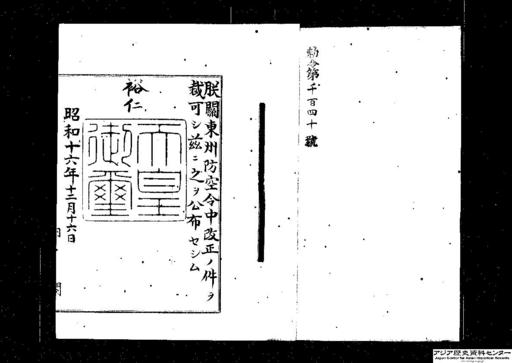 勅令第千百四十號
朕關東州防空令中改正ノ件ヲ
裁可シ茲ニ之ヲ公布セシム
裕仁
天皇
御璽
昭和十六年十二月十六日
内閣
アジア歴史資料センター
Japan Center for Asian Historical Records